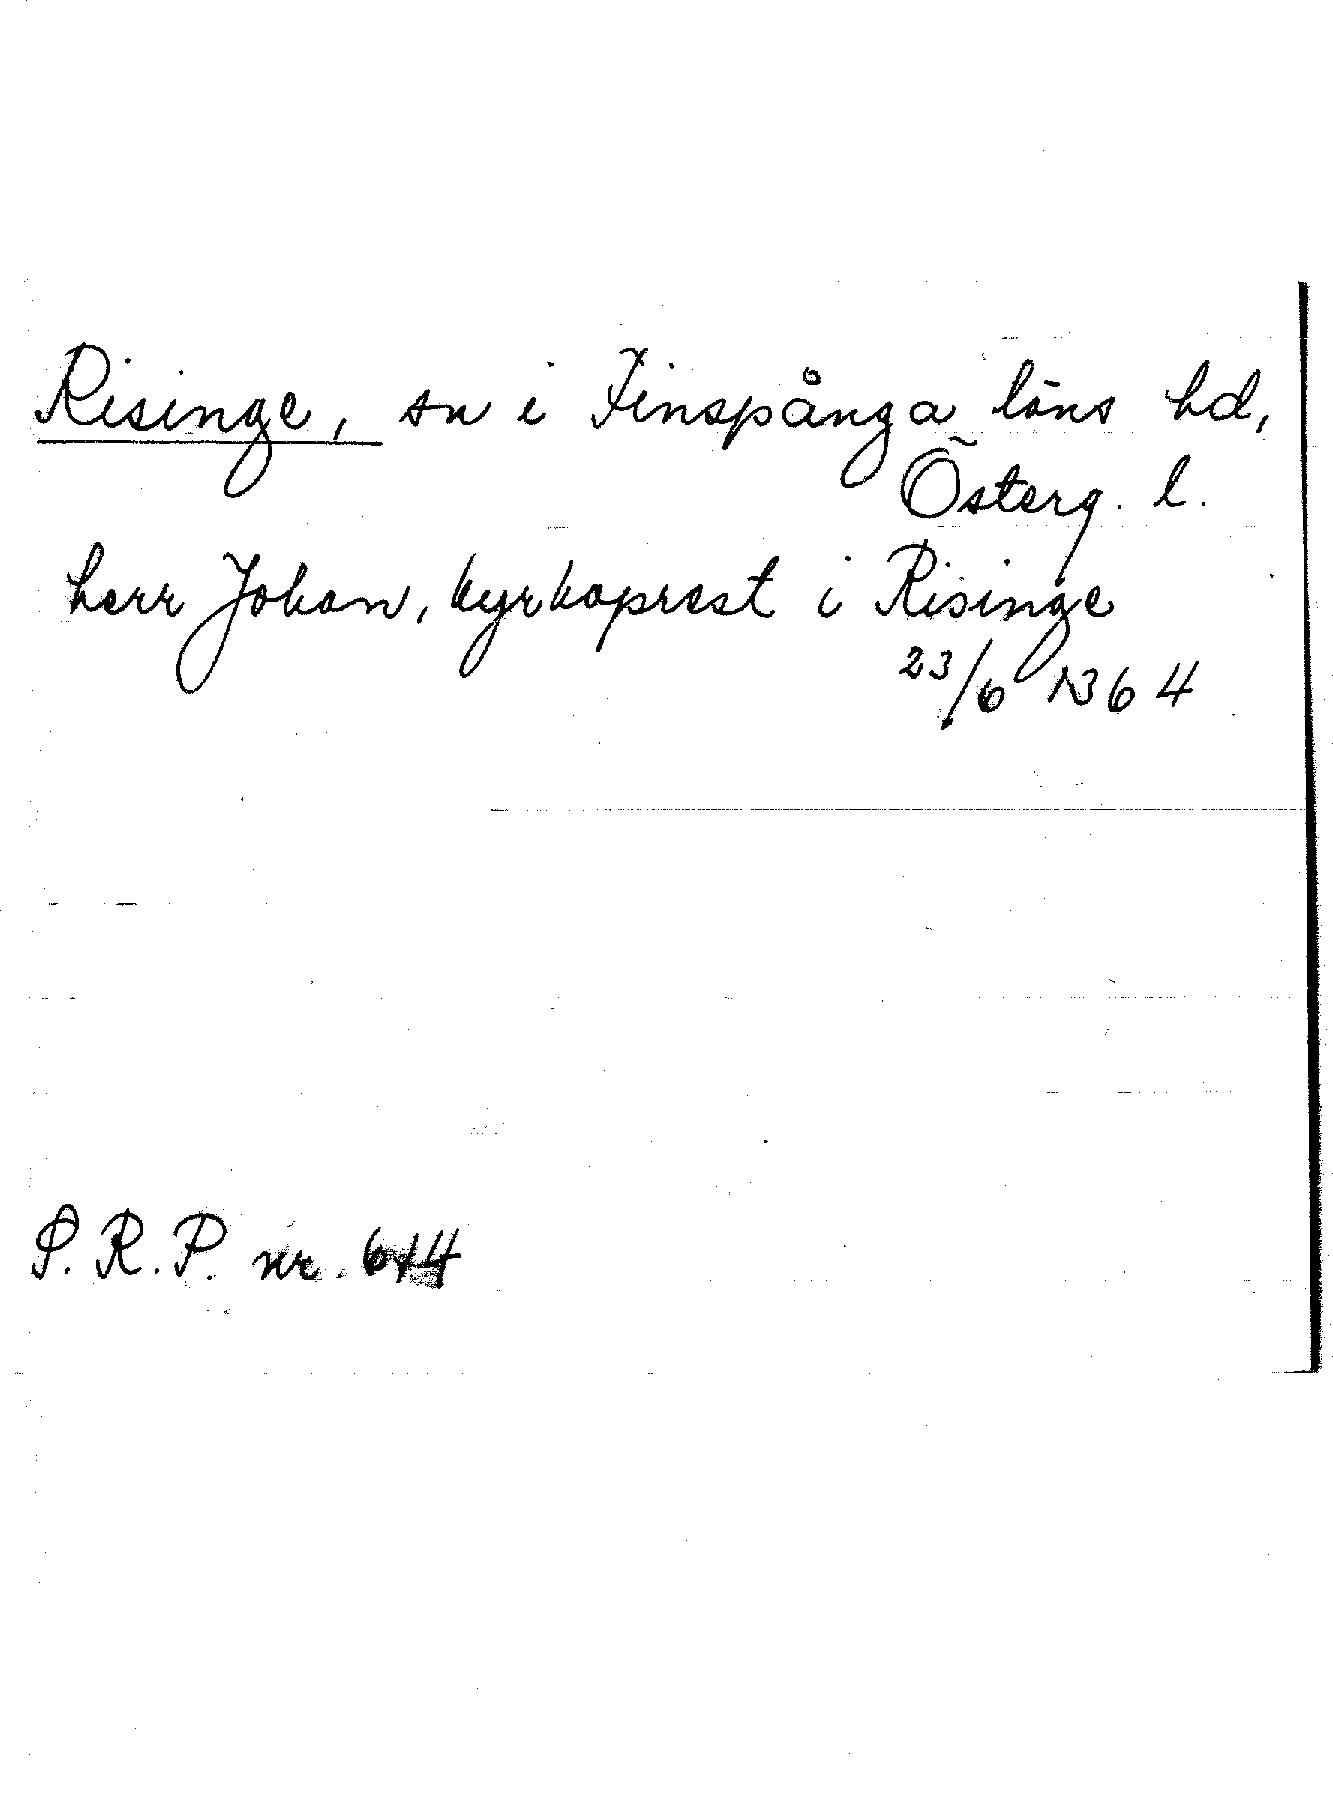 Risinge, sn i Finspånga läns hd,
Österg. l.
herr Johan, kyrkoprest i Risinge
23/6 1364
S. R. P. nr. 614